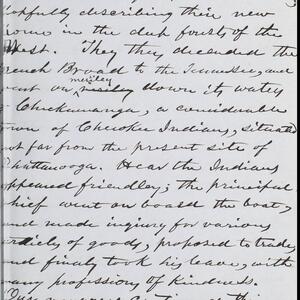 hopefully describing their new
home in the dark forests of the
West. They thus decended the
French Broad to the Tennessee, and
went on merily down its waters
to Chickamauga, a considerable
town of Cherokee Indians, situated
not far from the present site of
Chattanooga. Hear the Indians
appeared friendley; the principal
chief went on board the boat,
and made injury for various
articles of goods, proposed to trade,
and finaly took his leave, with
many professions of kindness.